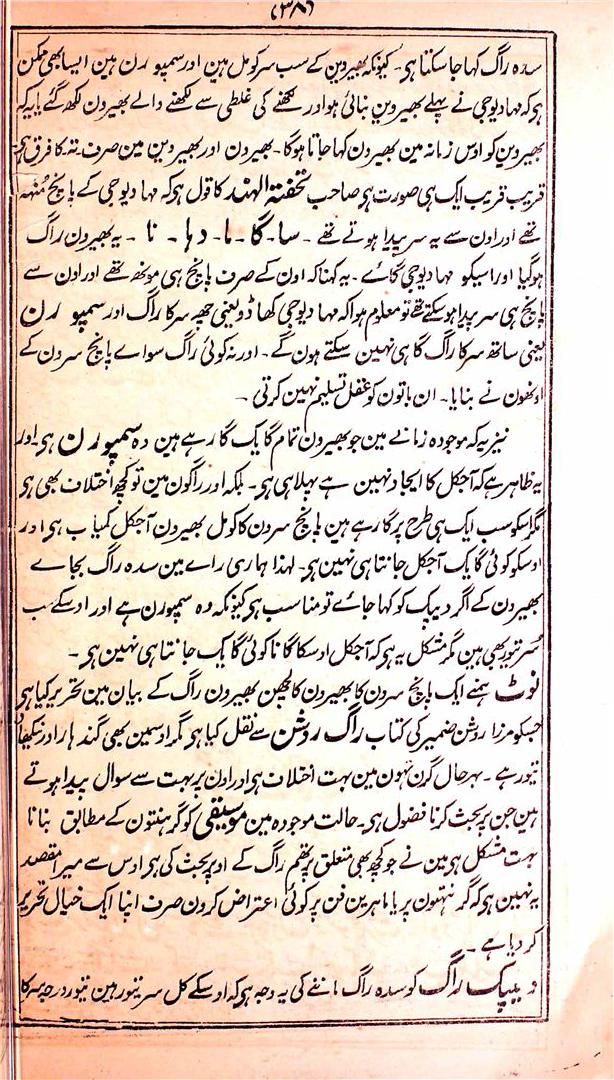 (۳۸)
سدہ راگ کہا جا سکتا ہی۔ کیونکہ بھیروین کے سب سر کومل ہین اور سمپورن ہین ایسا بھی ممکن
ہو کہ مہادیو جی نے پہلے بھیروین بنائی ہو اور لکھنے کی غلطی سے لکھنے والے بھیرون لکھ گئے یا یہ کہ
بھیروین کو اوس زمانہ مین بھیرون کہا جاتا ہوگا۔ بھیرون اور بھیروین مین صرف تہ کا فرق ہی
قریب قریب ایک ہی صورت ہی صاحب تحفۃ الہند کا قول ہو کہ مہادیو جی کے پانچ منہہ
تھے اور اون سے یہ سر پیدا ہوتے تھے۔ سا۔ گا۔ ما۔ دہا۔ نا۔ یہ بھیرون راگ
ہوگیا اور اسیکو مہادیو جی گائے۔ یہ کہنا کہ اون کے صرف پانچ ہی مونھ تھے اور اون سے
پانچ ہی سر پیدا ہو سکتے تھے تو معلوم ہوا کہ مہادیو جی کھاڈو یعنی چھہ سر کا راگ اور سمپورن
یعنی ساتھ سر کا راگ گا ہی نہین سکتے ہون گے۔ اور نہ کوئی راگ سواے پانچ سرون کے
اونھون نے بنایا۔ ان باتون کو عقل تسلیم نہین کرتی۔
نیز یہ کہ موجودہ زمانے مین جو بھیرون تمام گایک گا رہے ہین وہ سمپورن ہی اور
یہ ظاہر ہے کہ آجکل کا ایجاد نہین ہے پہلا ہی ہی۔ بلکہ اور راگون مین تو کچھ اختلاف بھی ہی
مگر اسکو سب ایک ہی طرح پر گا رہے ہین پانچ سرون کا کومل بھیرون آجکل کمیاب ہی اور
اوسکو کوئی گایک آجکل جانتا ہی نہین ہی۔ لہذا ہماری راے مین سدہ راگ بجاے
بھیرون کے اگر دیپک کو کہا جاے تو مناسب ہی کیونکہ وہ سمپورن ہے اور اوسکے سب
سر تیور بھی ہین مگر مشکل یہ ہی کہ آجکل اوسکا گانا کوئی گایک جانتا ہی نہین ہی۔
نوٹ ہمنے ایک پانچ سرون کا بھیرون کا لچھن بھیرون راگ کے بیان مین تحریر کیا ہی
جسکو مرزا روشن ضمیر کی کتاب راگ روشن سے نقل کیا ہی مگر اوسمین بھی گندہار اور نکھاد
تیور ہے۔ بہرحال گرنتہون مین بہت اختلاف ہی اور اون پر بہت سے سوال پیدا ہوتے
ہین جن پر بحث کرنا فضول ہی۔ حالت موجودہ مین موسیقی کو گرنتہون کے مطابق بنانا
بہت مشکل ہی مین نے جو کچھ بھی متعلق پرتھم راگ کے اوپر بحث کی ہی اوس سے میرا مقصد
یہ نہین ہی کہ گرنتہون پر یا ماہرین فن پر کوئی اعتراض کرون صرف اپنا ایک خیال تحریر
کر دیا ہے۔
دیپک راگ کو سدہ راگ ماننے کی یہ وجہ ہی کہ اوسکے کل سر تیور ہین تیور درجہ سر کا